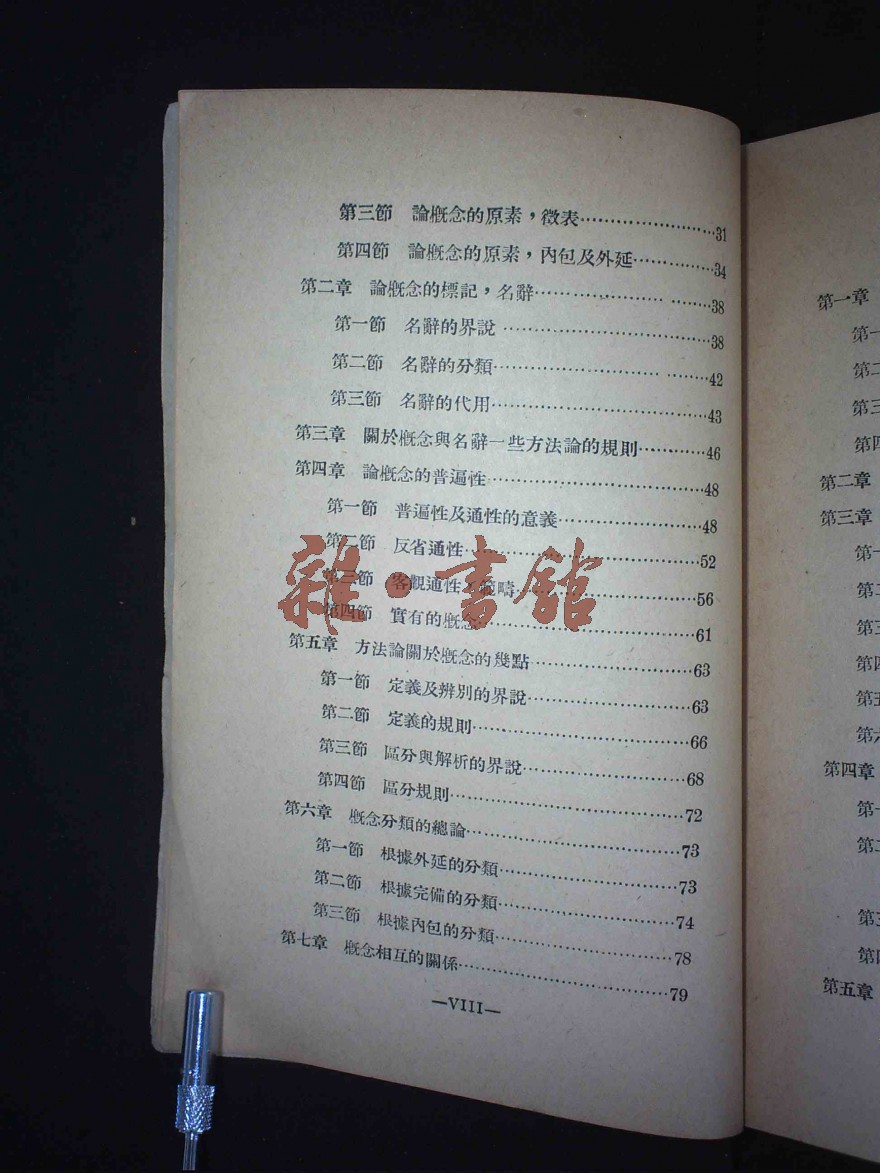 第三節 論概念的原素，徵表……………………31
第四節 論概念的原素，內包及外延……………34
第二章 論概念的標記，名辭……………………38
第一節 名辭的界說……………………………38
第二節 名辭的分類……………………………42
第三節 名辭的代用……………………………43
第三章 關於概念與名辭一些方法論的規則………46
第四章 論概念的普遍性…………………………48
第一節 普遍性及通性的意義…………………48
第二節 反省通性………………………………52
第三節 客觀通性，範疇………………………56
第四節 實有的概念……………………………61
第五章 方法論關於概念的幾點…………………63
第一節 定義及辨別的界說……………………63
第二節 定義的規則……………………………66
第三節 區分與解析的界說……………………68
第四節 區分規則………………………………72
第六章 概念分類的總論…………………………73
第一節 根據外延的分類………………………73
第二節 根據完備的分類………………………74
第三節 根據內包的分類………………………78
第七章 概念相互的關係…………………………79
—VIII—
雜·書館
第一章
第一
第二
第三
第四
第二章
第三章
第一
第二
第三
第四
第五
第六
第四章
第一
第二
第三
第四
第五章